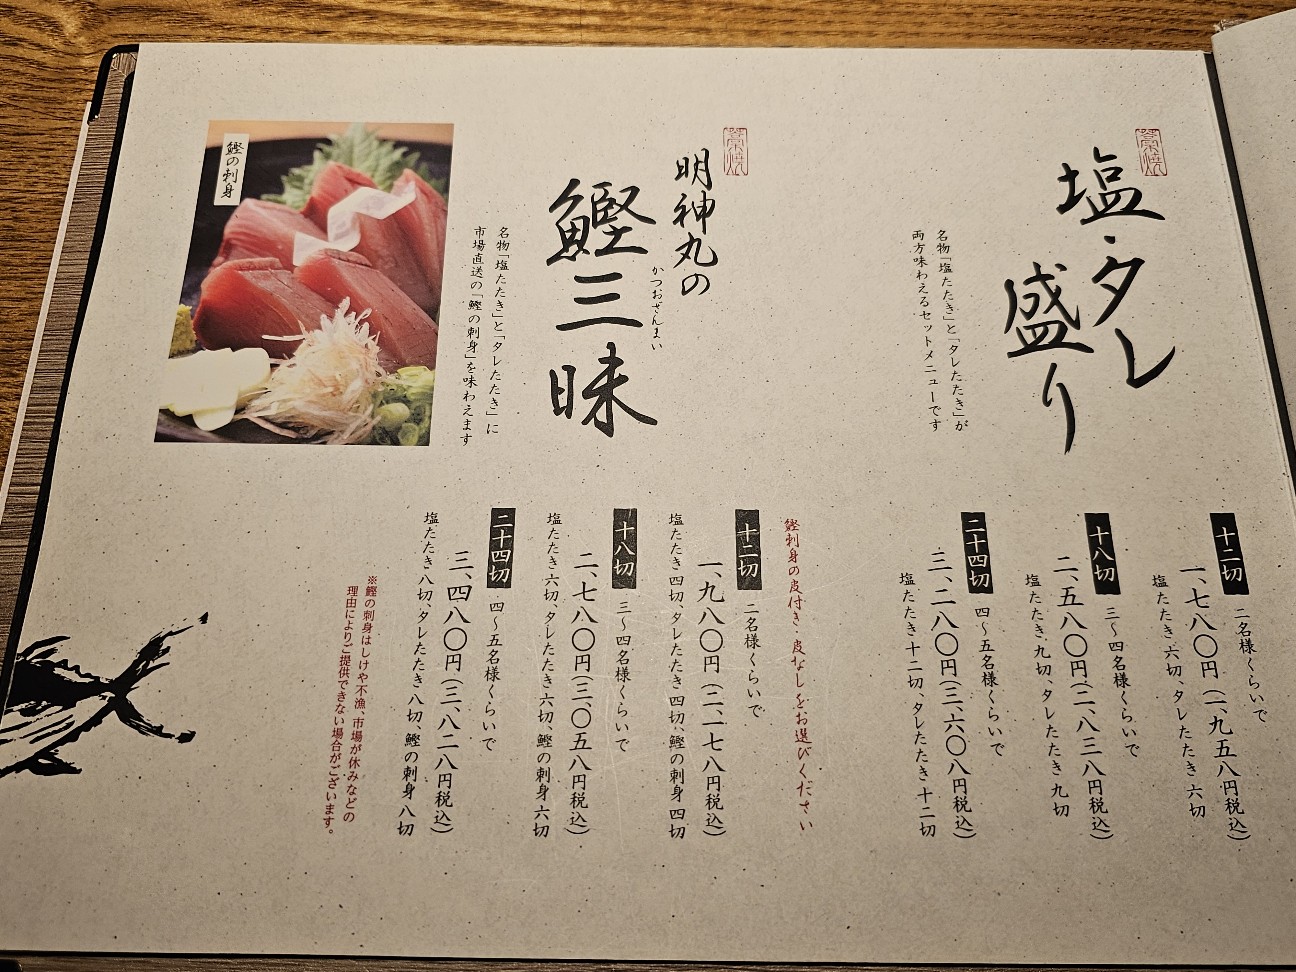 藁焼
塩・タレ
盛り
名物「塩たたき」と「タレたたき」が
両方味わえるセットメニューです
十二切 二名様くらいで
一、七八〇円（一、九五八円税込）
塩たたき 六切、タレたたき 六切
十八切 三〜四名様くらいで
二、五八〇円（二、八三八円税込）
塩たたき 九切、タレたたき 九切
二十四切 四〜五名様くらいで
三、二八〇円（三、六〇八円税込）
塩たたき 十二切、タレたたき 十二切
藁焼
明神丸の
鰹三昧
かつおざんまい
名物「塩たたき」と「タレたたき」に
市場直送の「鰹の刺身」を味わえます
鰹の刺身
鰹刺身の皮付き・皮なしをお選びください
十二切 二名様くらいで
一、九八〇円（二、一七八円税込）
塩たたき 四切、タレたたき 四切、鰹の刺身 四切
十八切 三〜四名様くらいで
二、七八〇円（三、〇五八円税込）
塩たたき 六切、タレたたき 六切、鰹の刺身 六切
二十四切 四〜五名様くらいで
三、四八〇円（三、八二八円税込）
塩たたき 八切、タレたたき 八切、鰹の刺身 八切
※鰹の刺身はしけや不漁、市場が休みなどの
理由によりご提供できない場合がございます。